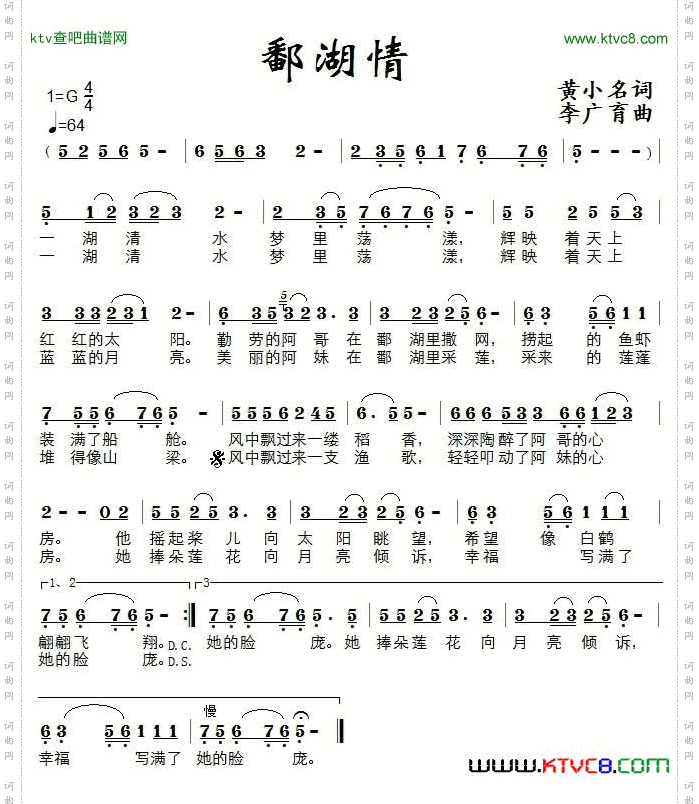 ktv查吧曲谱网
www.ktvc8.com
鄱湖情
1=G 4/4
♩=64
黄小名词
李广育曲
( 5 2 5 6 5 - | 6 5 6 3 2 - | 2 3 5 6 1 7 6 7 6 | 5 - - - )
5 1 2 3 2 3 2 - | 2 3 5 7 6 7 6 5 - | 5 5 2 5 5 3
一 湖 清 水 梦 里 荡 漾, 辉 映 着 天 上
一 湖 清 水 梦 里 荡 漾, 辉 映 着 天 上
3 3 3 2 3 1 2 - | 6 3 5 5 3 2 3 . 3 | 3 2 3 2 5 6 - | 6 3 5 6 1 1
红 红的太 阳。 勤 劳的阿 哥 在 鄱 湖里撒 网, 捞起 的 鱼虾
蓝 蓝的月 亮。 美 丽的阿 妹 在 鄱 湖里采 莲, 采来 的 莲蓬
7 5 5 6 7 6 5 - | 5 5 5 6 2 4 5 | 6 . 5 5 - | 6 6 6 5 3 3 6 6 1 2 3
装 满了船 舱。 风中飘过来一缕 稻 香, 深深陶醉了阿 哥的心
堆 得像山 梁。 风中飘过来一支 渔 歌, 轻轻叩动了阿 妹的心
2 - - 0 2 | 5 5 2 5 3 . 3 | 3 2 3 2 5 6 - | 6 3 5 6 1 1 1
房。 他 摇起桨 儿 向 太 阳 眺 望, 希望 像 白鹤
房。 她 捧朵莲 花 向 月 亮 倾 诉, 幸福 写满了
1、2 3
7 5 6 7 6 5 - :‖ 7 5 6 7 6 5 . 5 | 5 5 2 5 3 . 3 | 3 2 3 2 5 6 -
翩翩飞 翔。D.C. 她的脸 庞。她 捧朵莲 花 向 月 亮 倾 诉,
她的脸 庞。D.S.
慢
6 3 5 6 1 1 1 | 7 5 6 7 6 5 - ‖
幸福 写满了 她的脸 庞。
www.KTVC8.com